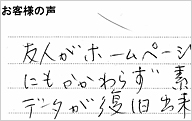 お客様の声
友人がホームページ
にもかかわらず 素
データが復旧出来